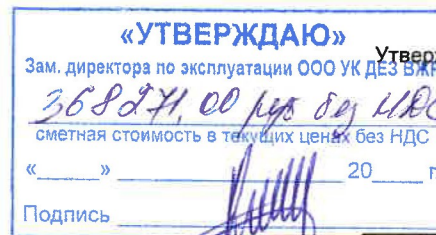 «УТВЕРЖДАЮ»
Утверж
Зам. директора по эксплуатации ООО УК ДЕЗ ВЖР
368271,00 руб без НДС
сметная стоимость в текущих ценах без НДС
«______» ____________ 20____ г
Подпись